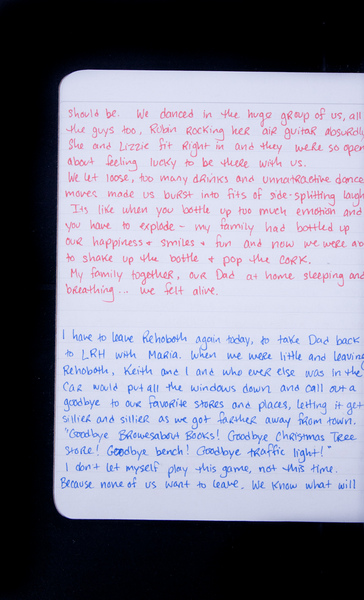 should be. We danced in the huge group of us, all
the guys too, Robin rocking her air guitar absurdly
She and Lizzie fit right in and they were so open
about feeling lucky to be there with us.
We let loose, too many drinks and unattractive dance
moves made us burst into fits of side-splitting laugh
Its like when you bottle up too much emotion and
you have to explode - my family had bottled up
our happiness + smiles + fun and now we were
to shake up the bottle + pop the cork.
My family together, our Dad at home sleeping and
breathing... we felt alive.
I have to leave Rehoboth again today, to take Dad back
to LRH with Maria. When we were little and leaving
Rehoboth, Keith and I and who ever else was in the
car would put all the windows down and call out a
goodbye to our favorite stores and places, letting it get
sillier and sillier as we got farther away from town.
"Goodbye Browseabout Books! Goodbye Christmas Tree
Store! Goodbye bench! Goodbye traffic light!"
I don't let myself play this game, not this time.
Because none of us want to leave. We know what will